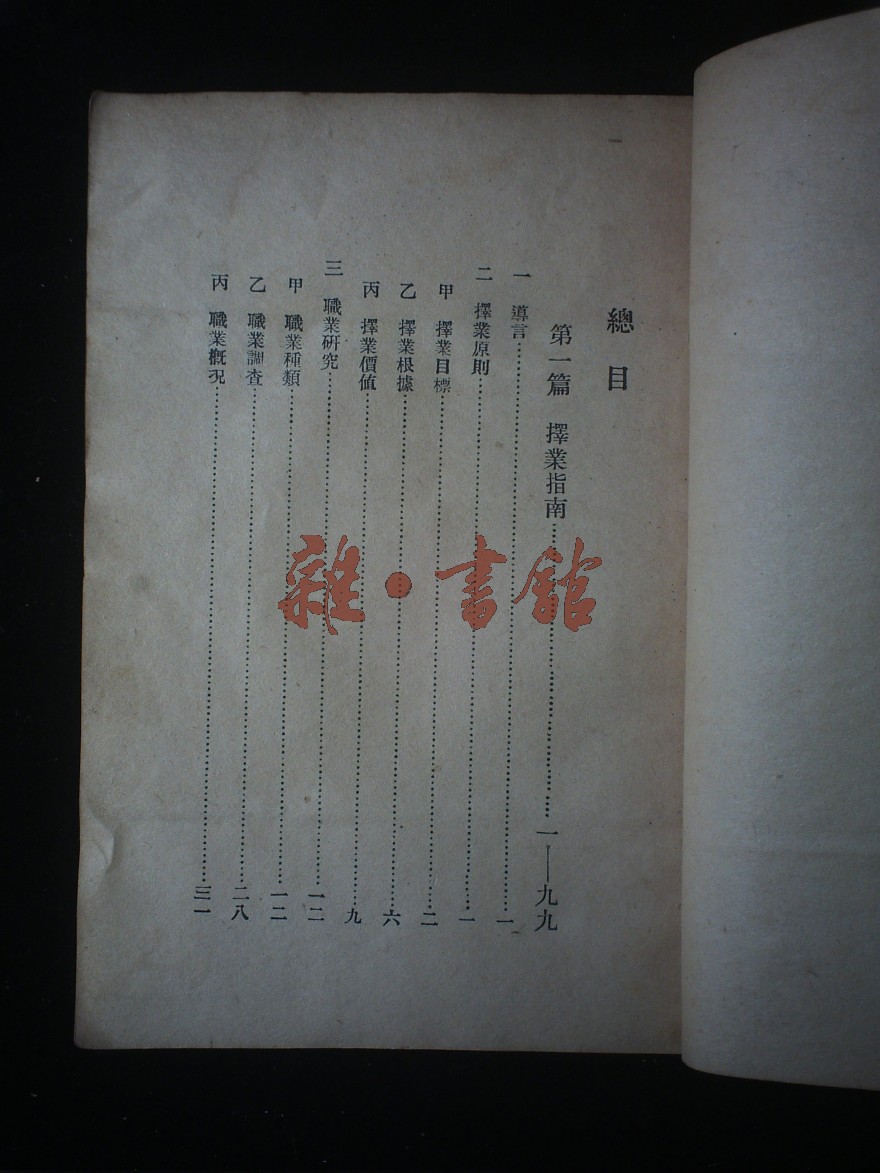 總目
第一篇 擇業指南……一——九九
一 導言……一
二 擇業原則……一
甲 擇業目標……二
乙 擇業根據……六
丙 擇業價值……九
三 職業研究……一二
甲 職業種類……一二
乙 職業調查……二八
丙 職業概況……三一
雜·書館